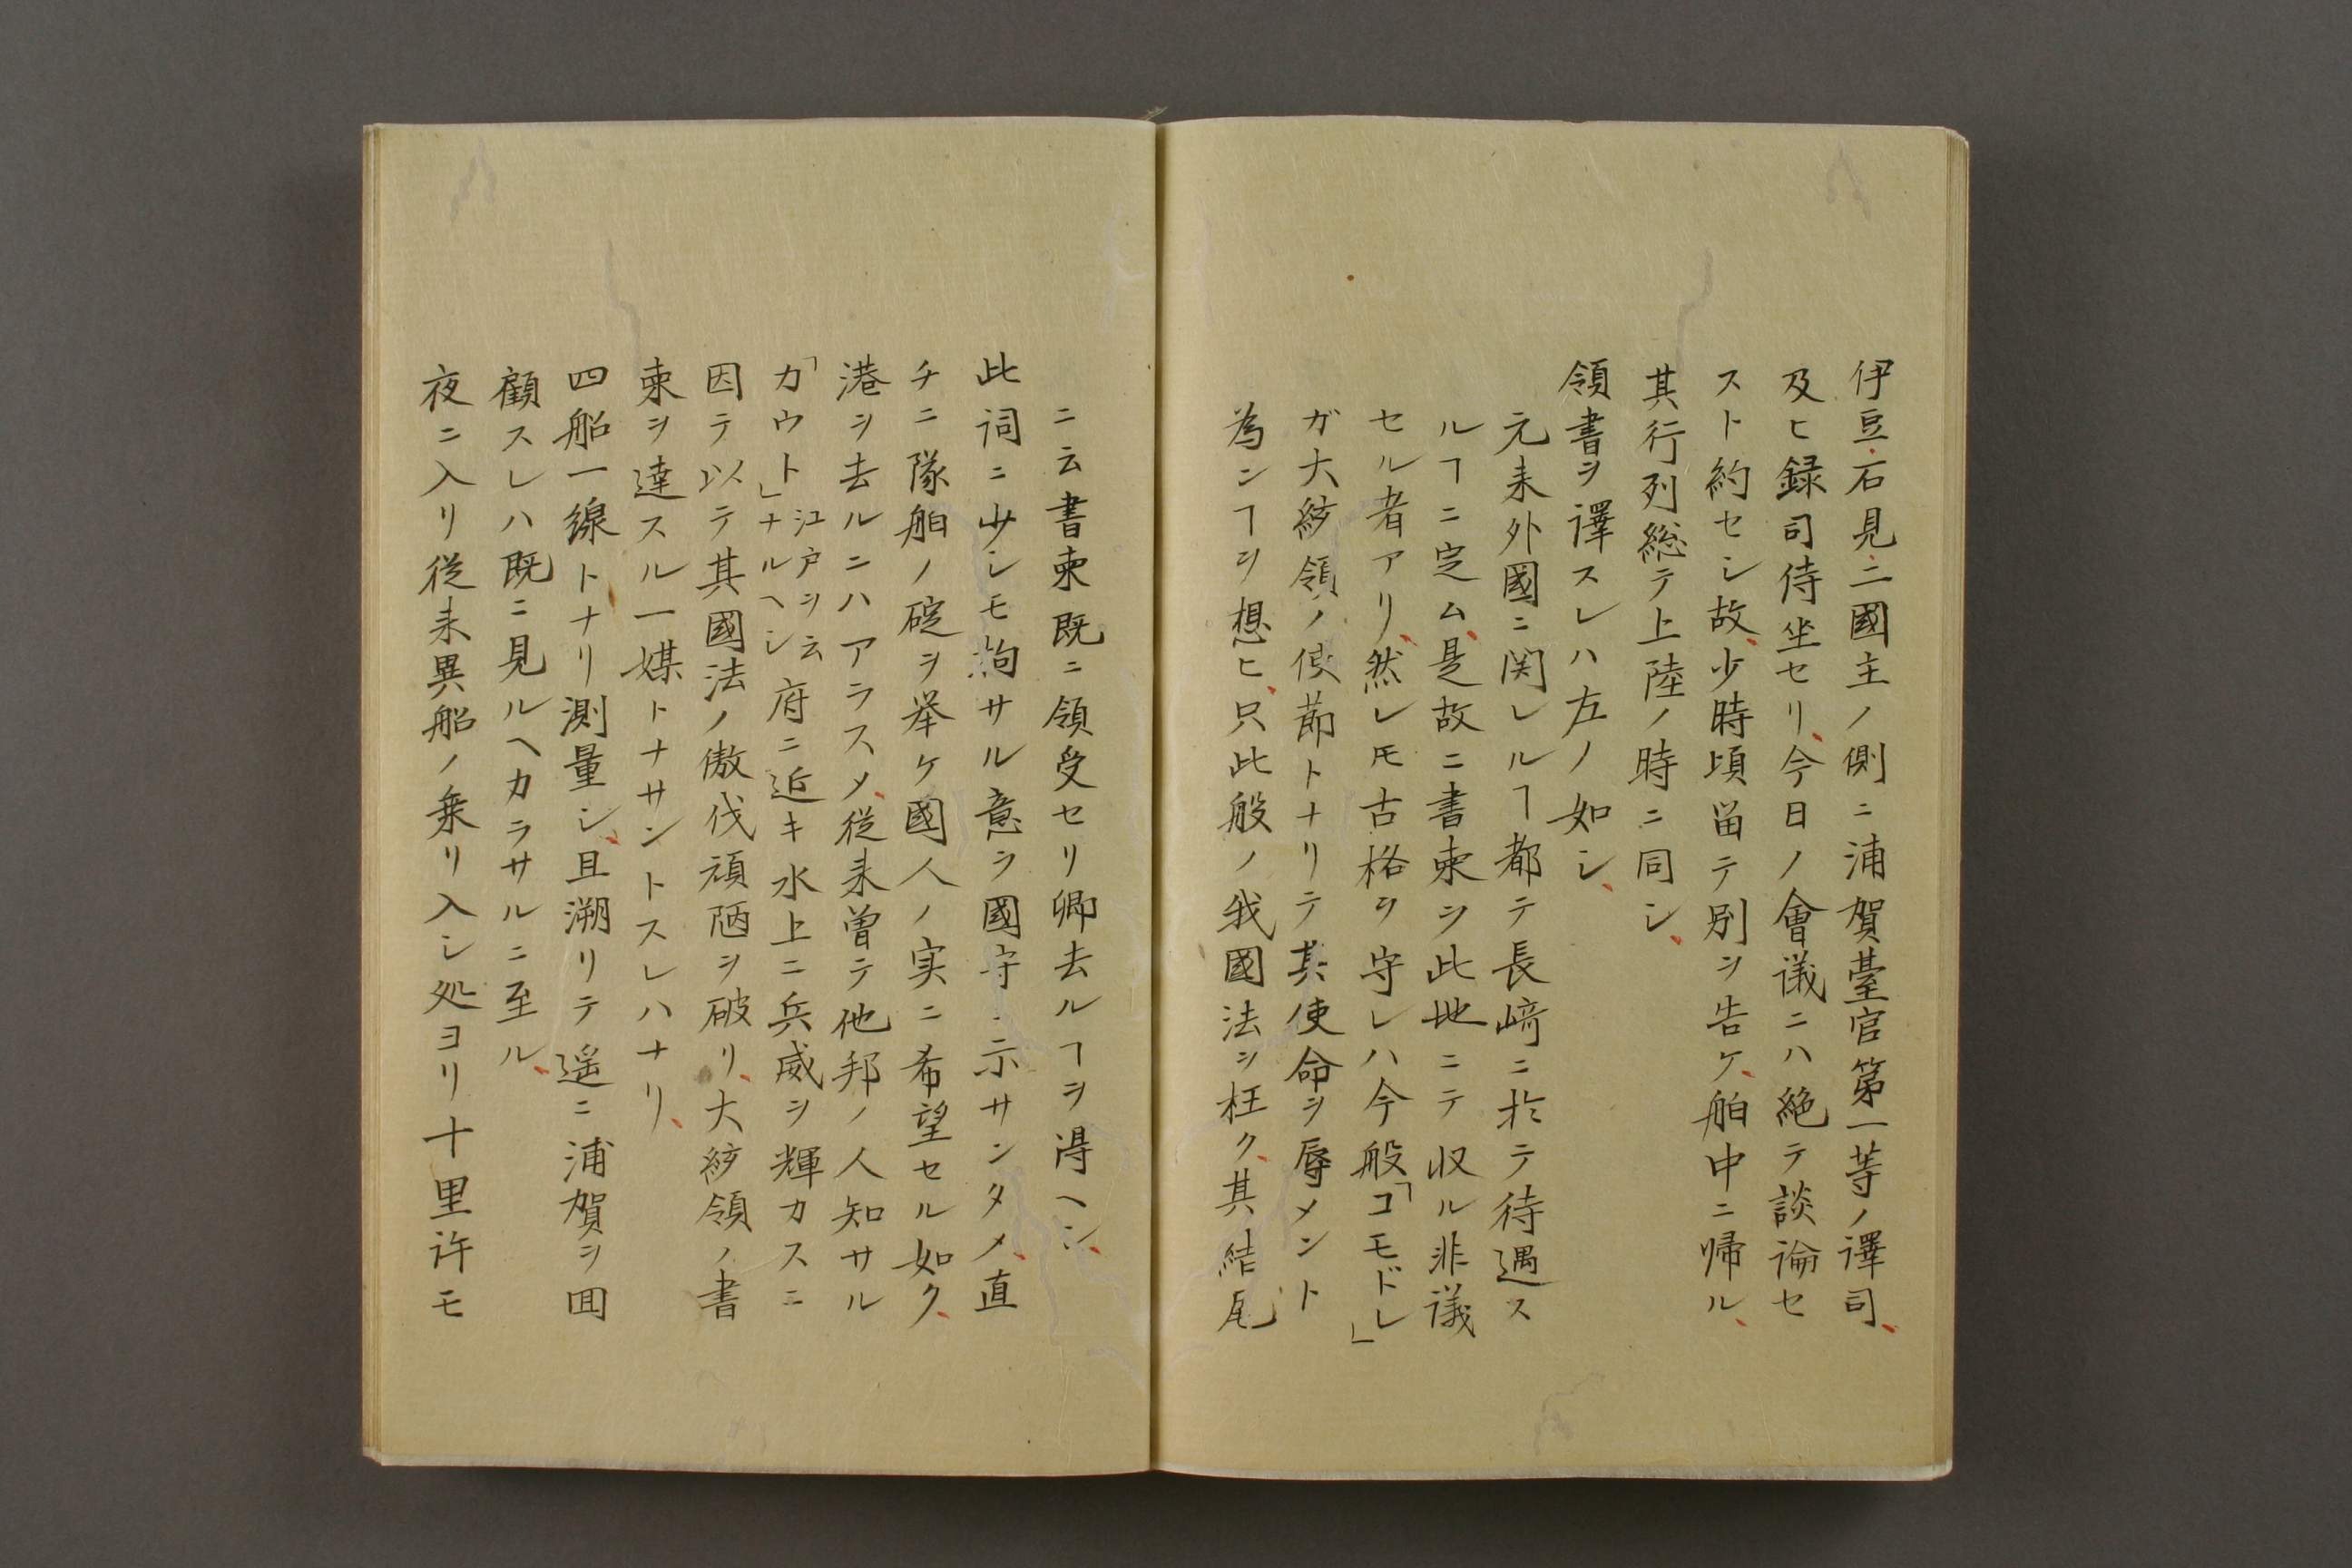 伊豆、石見、二國主ノ側ニ浦賀臺官第一等ノ譯司、
及ヒ録司侍坐セリ、今日ノ會議ニハ絶テ談論セ
スト約セシ故、少時頃留テ別ヲ告ケ、舶中ニ帰ル、
其行列総テ上陸ノ時ニ同シ、
領書ヲ譯スレハ左ノ如シ、
元来外國ニ関レルヿ都テ長﨑ニ於テ待遇ス
ルヿニ定ム、是故ニ書柬ヲ此地ニテ収ル非議
セル者アリ、然レ𪜈古格ヲ守レハ今般「コモドレ」
ガ大統領ノ使節トナリテ其使命ヲ辱メント
為ンヿヲ想ヒ、只此般ノ我國法ヲ枉ク、其結尾
ニ云書柬既ニ領受セリ卿去ルヿヲ得ヘシ、
此詞ニ少シモ拘サル意ヲ國守ニ示サンタメ、直
チニ隊舶ノ碇ヲ挙ケ國人ノ実ニ希望セル如ク、
港ヲ去ルニハアラスメ、従来曽テ他邦ノ人知サル
「カウト」江戸ヲ云ナルヘシ府ニ近キ水上ニ兵威ヲ輝カスニ
因テ以テ其國法ノ傲伐頑陋ヲ破リ、大統領ノ書
柬ヲ達スル一媒トナサントスレハナリ、
四船一線トナリ測量シ、且溯リテ遥ニ浦賀ヲ囬
顧スレハ既ニ見ルヘカラサルニ至ル、
夜ニ入リ従来異船ノ乗リ入シ処ヨリ十里許モ